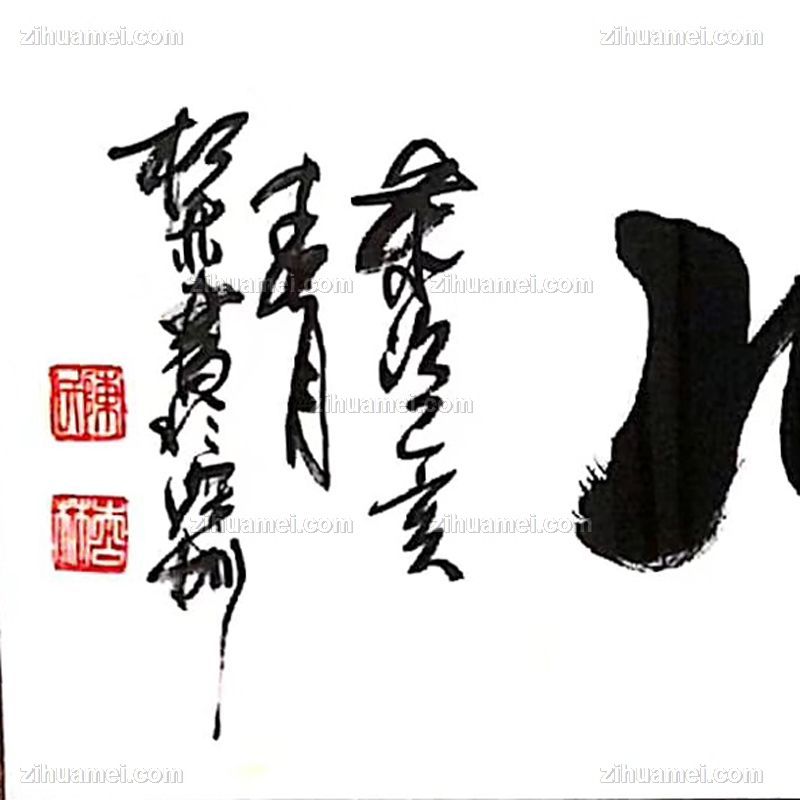 zihuamei.com zihuamei.com
歲次己亥
春月
林書於深圳
杏林
zihuamei.com zihuamei.com
zihuamei.com
zihuamei.com zihuamei.com
zihuamei.com zihuamei.com